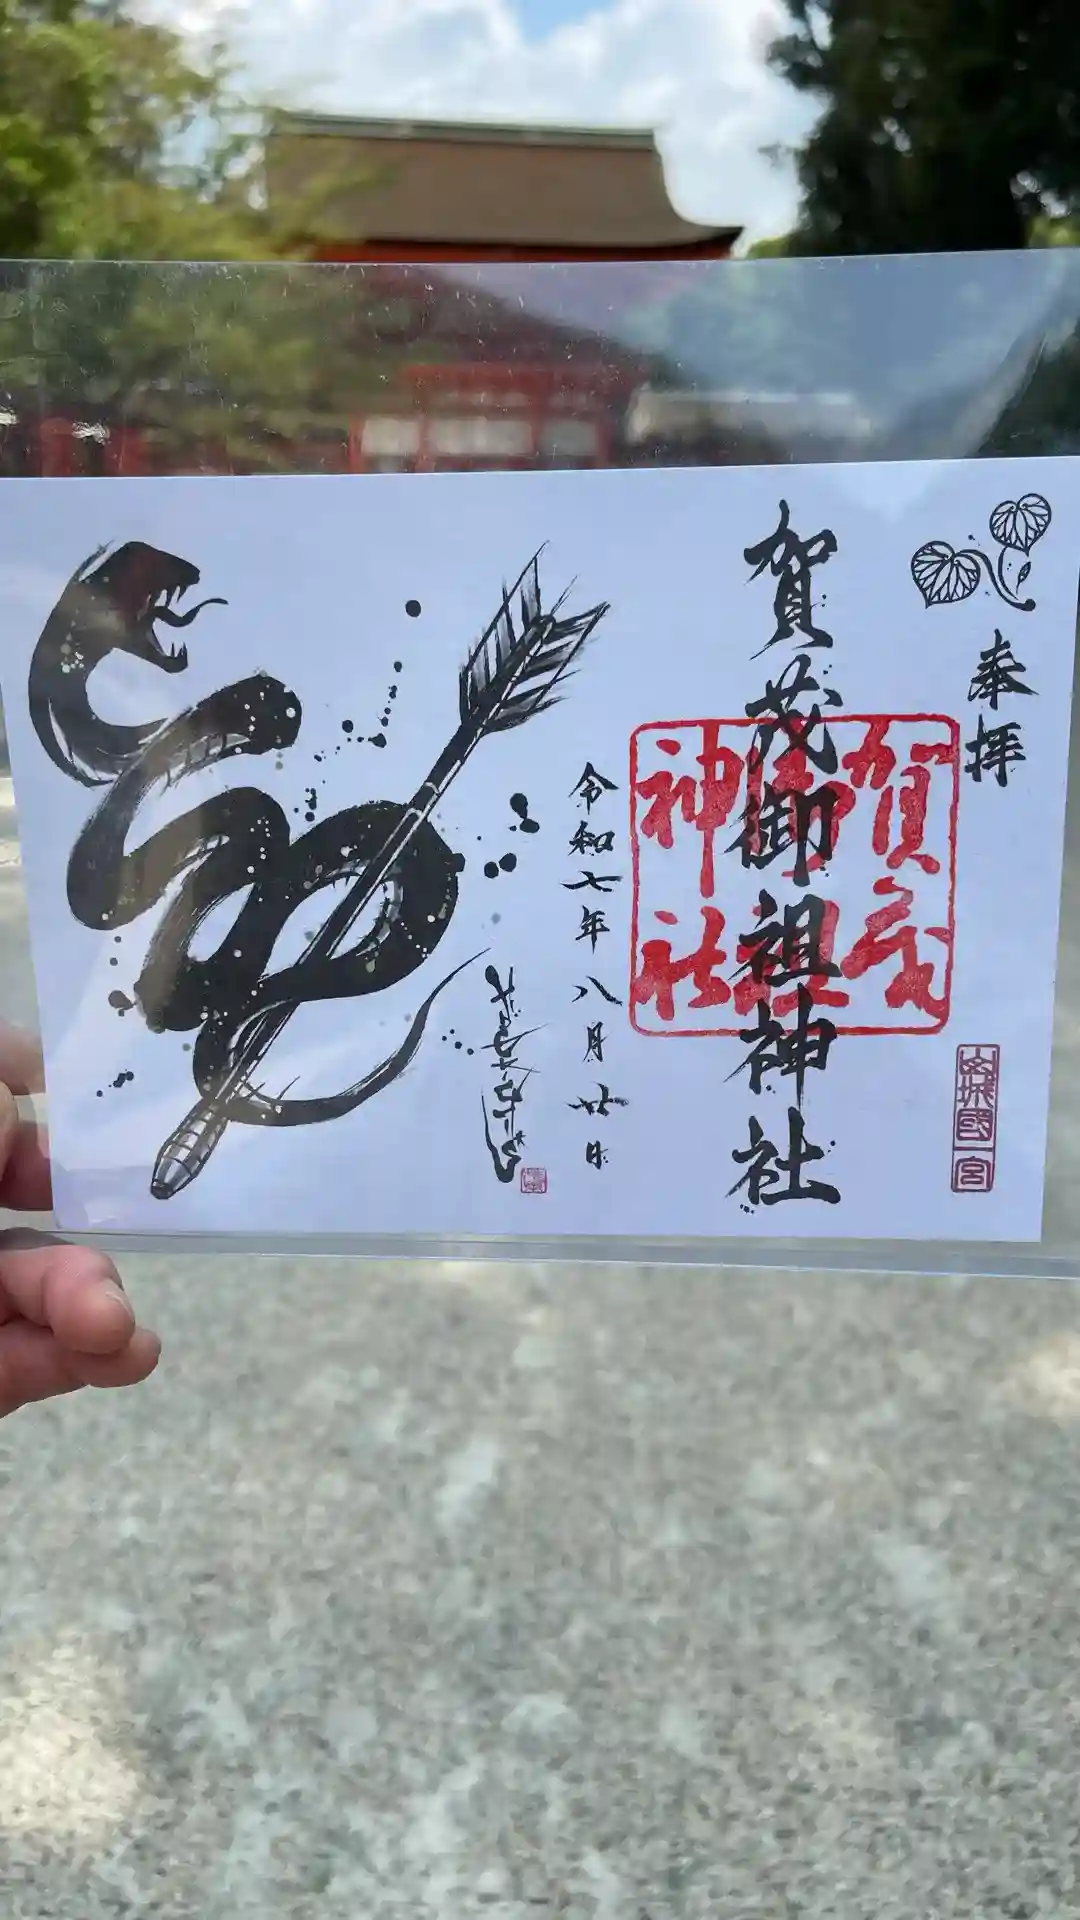 奉拝
山城國一宮
賀茂御祖神社
賀茂御祖神社
令和七年八月廿日